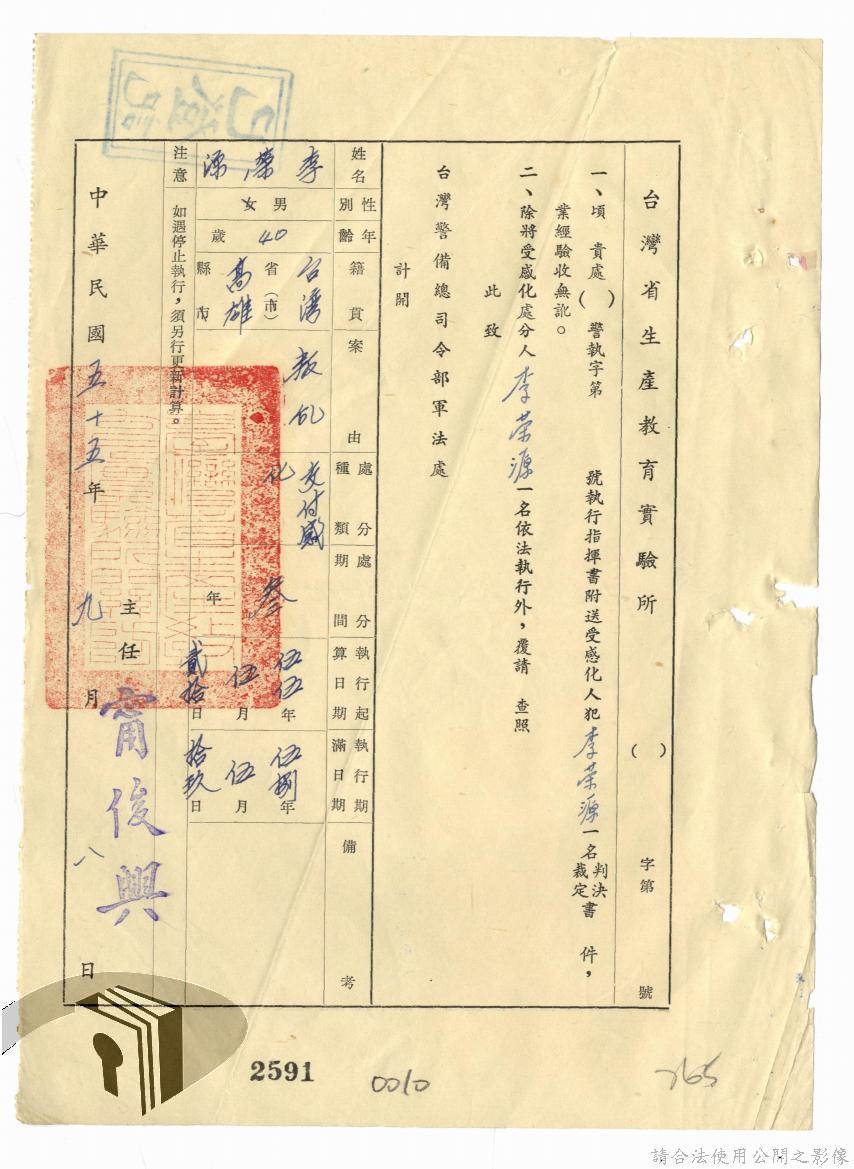 台灣省生產教育實驗所 ( ) 字第 號
一、頃 貴處( )警執字第 號執行指揮書附送受感化人犯李荣源一名判決裁定書 件，
業經驗收無訛。
二、除將受感化處分人李荣源一名依法執行外，覆請 查照
此致
台灣警備總司令部軍法處
計開
姓名 性別 年齡 籍貫 案由 處分種類 處分期間 執行起算日期 執行期滿日期 備考
李荣源 男女 40歲 台灣省(市)高雄縣市 叛乱 交付感化 叁年 伍伍年伍月貳拾日 伍捌年伍月拾玖日
注意 如遇停止執行，須另行更新計算。
主任 甯俊興
中華民國五十五年九月八日
2591
0010
765
請合法使用公開之影像